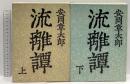 安岡章太郎
流離譚
上
安岡章太郎
流離譚
下